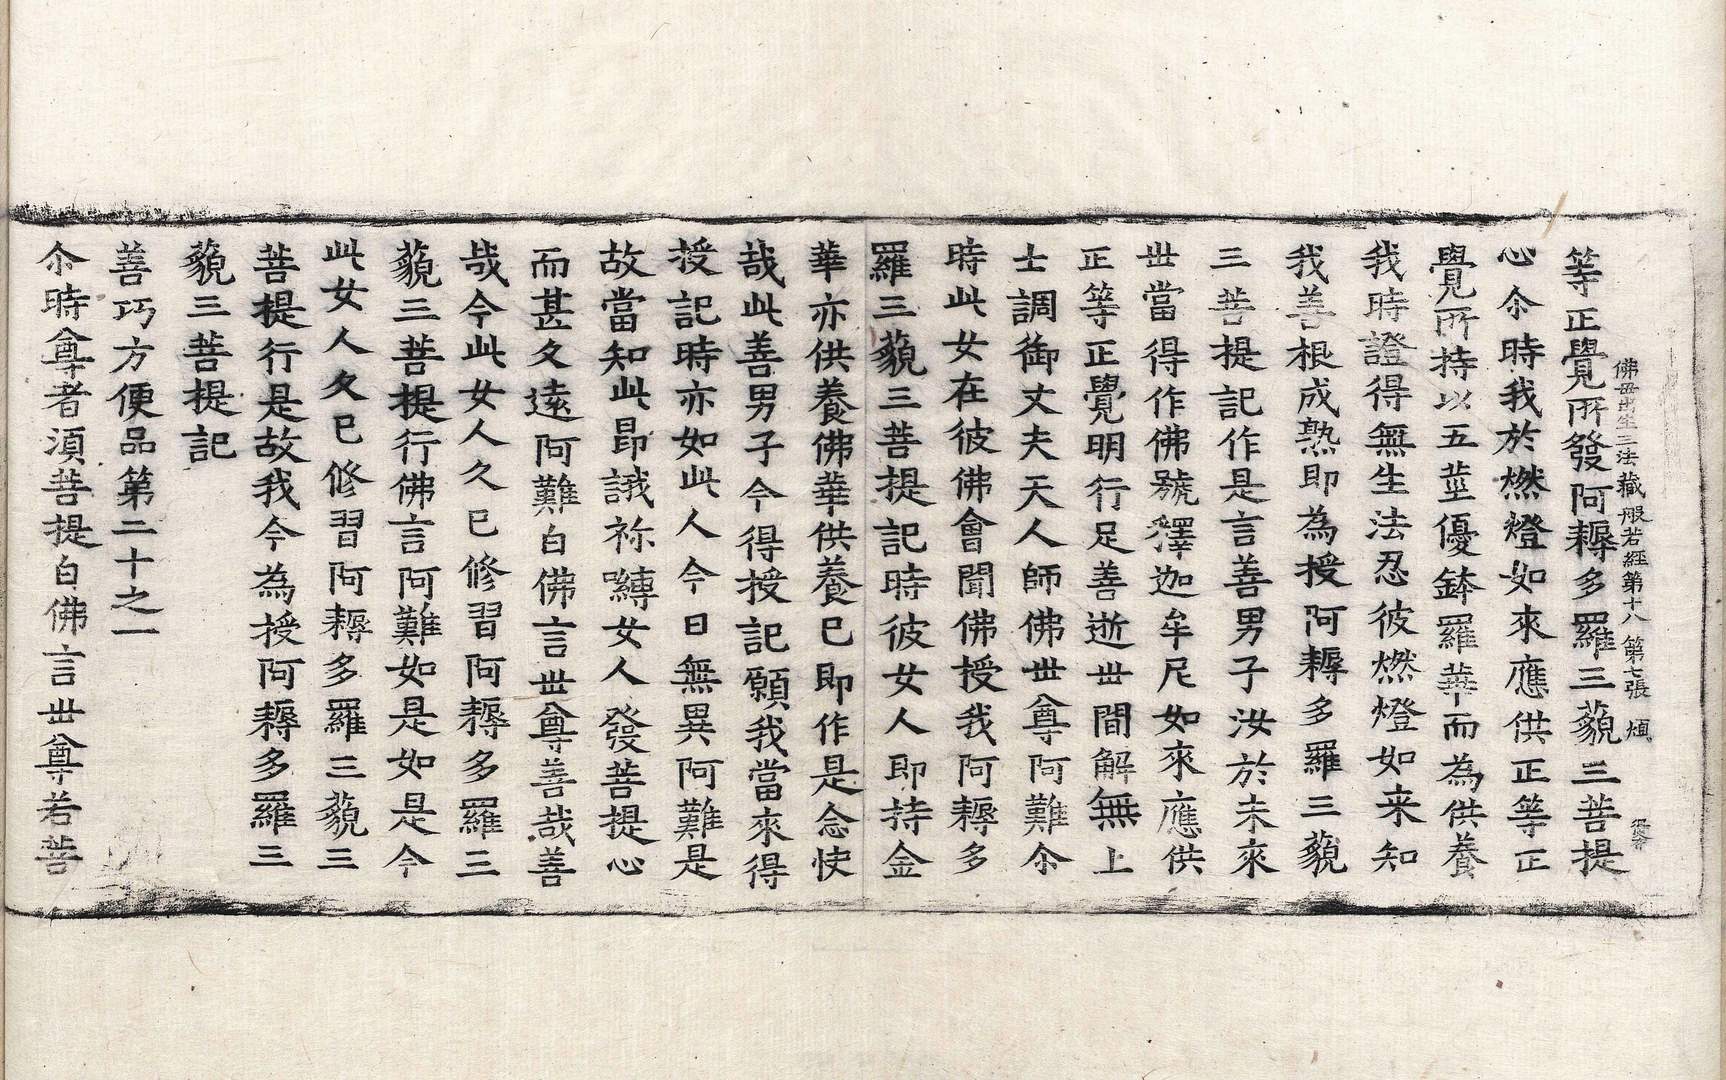 等正覺所發阿耨多羅三藐三菩提
佛母出生三法藏般若經第十八 第七張
心尒時我於燃燈如來應供正等正
覺所持以五莖優鉢羅華而為供養
我時證得無生法忍彼燃燈如来知
我善根成熟即為授阿耨多羅三藐
三菩提記作是言善男子汝於未來
世當得作佛號釋迦牟尼如來應供
正等正覺明行足善逝世間解無上
士調御丈夫天人師佛世尊阿難尒
時此女在彼佛會聞佛授我阿耨多
羅三藐三菩提記時彼女人即持金
華亦供養佛華供養已即作是念快
哉此善男子今得授記願我當來得
授記時亦如此人今日無異阿難是
故當知此昂誐祢嚩女人發菩提心
而甚久遠阿難白佛言世尊善哉善
哉今此女人久已修習阿耨多羅三
藐三菩提行佛言阿難如是如是今
此女人久已修習阿耨多羅三藐三
菩提行是故我今為授阿耨多羅三
藐三菩提記
善巧方便品第二十之一
尒時尊者湏菩提白佛言世尊若菩